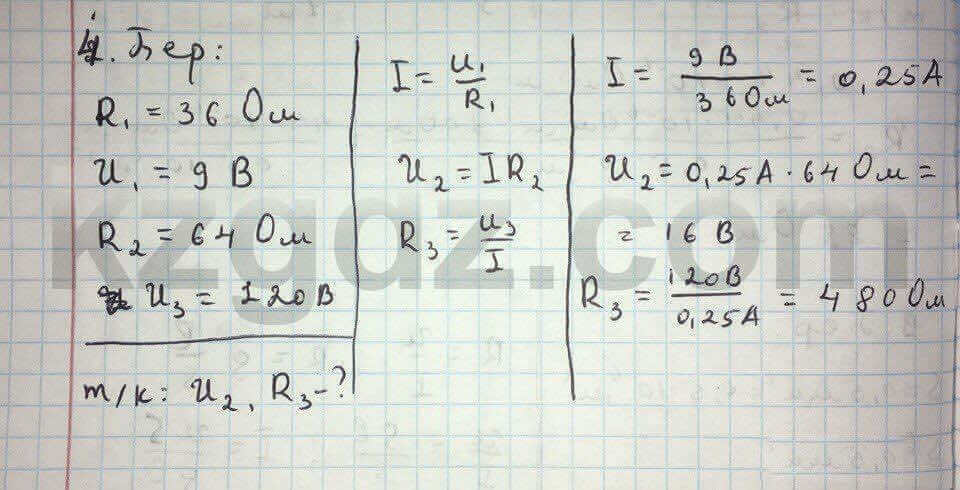 4. Бер:
R₁ = 36 Ом
U₁ = 9 В
R₂ = 64 Ом
U₃ = 120 В
т/к: U₂, R₃ - ?
I = U₁/R₁
U₂ = IR₂
R₃ = U₃/I
I = 9 В/36 Ом = 0,25 А
U₂ = 0,25 А · 64 Ом =
= 16 В
R₃ = 120 В/0,25 А = 480 Ом
kzgdz.com